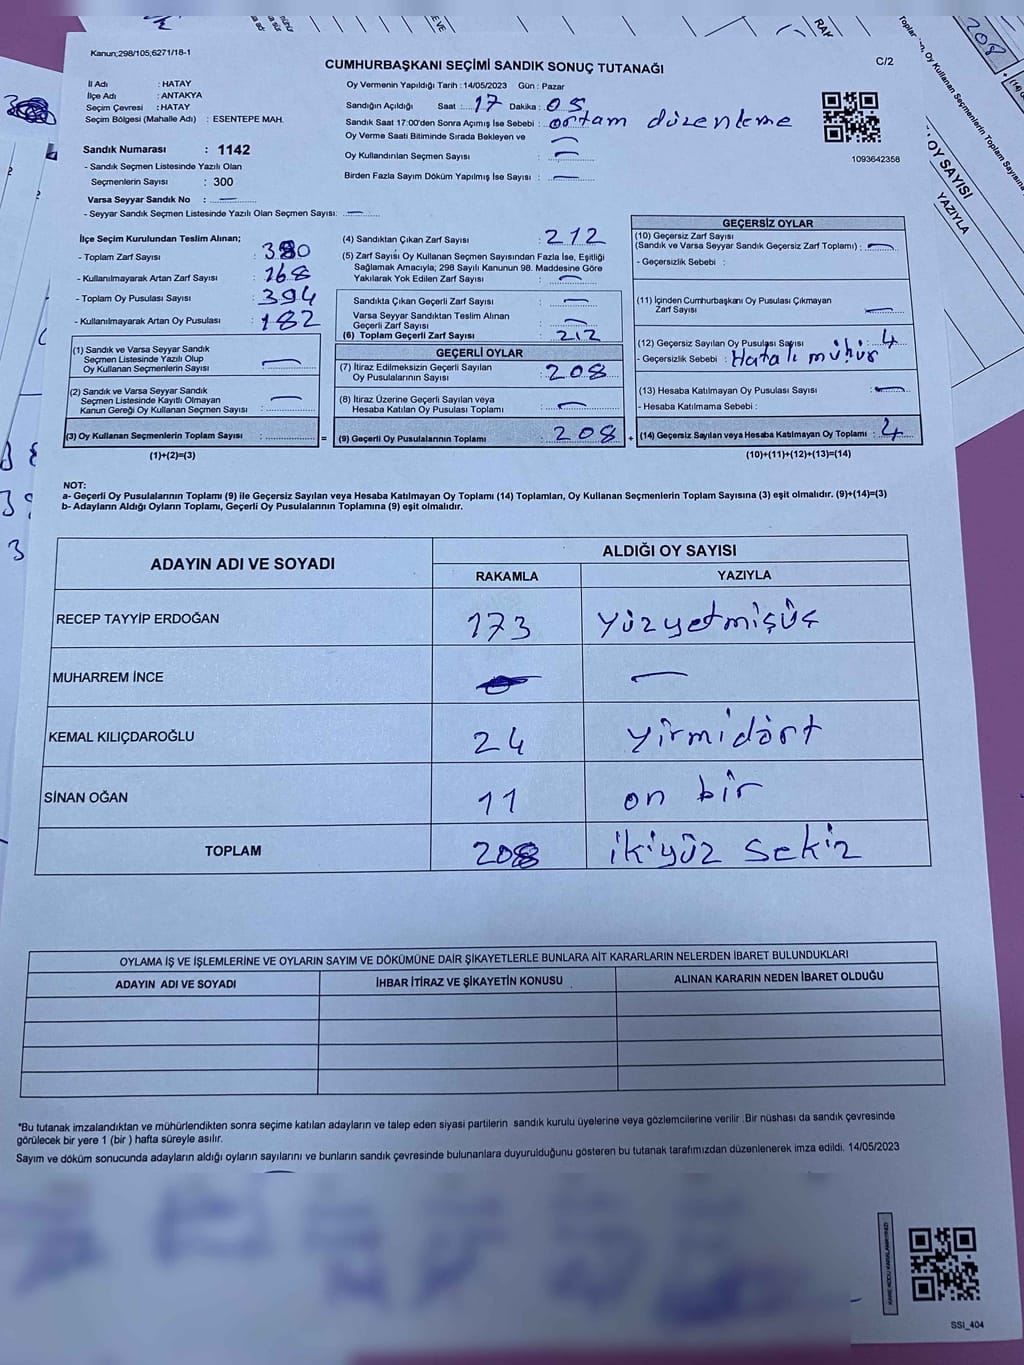 Kanun;298/105;6271/18-1
CUMHURBAŞKANI SEÇİMİ SANDIK SONUÇ TUTANAĞI
C/2
İl Adı : HATAY
İlçe Adı : ANTAKYA
Seçim Çevresi : HATAY
Seçim Bölgesi (Mahalle Adı) : ESENTEPE MAH.
Sandık Numarası : 1142
- Sandık Seçmen Listesinde Yazılı Olan
Seçmenlerin Sayısı : 300
Varsa Seyyar Sandık No : —
- Seyyar Sandık Seçmen Listesinde Yazılı Olan Seçmen Sayısı: —
Oy Vermenin Yapıldığı Tarih :14/05/2023 Gün : Pazar
Sandığın Açıldığı Saat :17 Dakika : 05
Sandık Saat 17:00'den Sonra Açımış İse Sebebi : ortam düzenleme
Oy Verme Saati Bitiminde Sırada Bekleyen ve
Oy Kullandırılan Seçmen Sayısı : —
Birden Fazla Sayım Döküm Yapılmış İse Sayısı : —
1093642358
İlçe Seçim Kurulundan Teslim Alınan;
- Toplam Zarf Sayısı : 380
- Kullanılmayarak Artan Zarf Sayısı : 168
- Toplam Oy Pusulası Sayısı : 394
- Kullanılmayarak Artan Oy Pusulası : 182
(1) Sandık ve Varsa Seyyar Sandık
Seçmen Listesinde Yazılı Olup
Oy Kullanan Seçmenlerin Sayısı : —
(2) Sandık ve Varsa Seyyar Sandık
Seçmen Listesinde Kayıtlı Olmayan
Kanun Gereği Oy Kullanan Seçmen Sayısı : —
(3) Oy Kullanan Seçmenlerin Toplam Sayısı :
(1)+(2)=(3)
(4) Sandıktan Çıkan Zarf Sayısı : 212
(5) Zarf Sayısı Oy Kullanan Seçmen Sayısından Fazla İse, Eşitliği
Sağlamak Amacıyla; 298 Sayılı Kanunun 98. Maddesine Göre
Yakılarak Yok Edilen Zarf Sayısı : —
Sandıkta Çıkan Geçerli Zarf Sayısı : —
Varsa Seyyar Sandıktan Teslim Alınan
Geçerli Zarf Sayısı : —
(6) Toplam Geçerli Zarf Sayısı : 212
GEÇERLİ OYLAR
(7) İtiraz Edilmeksizin Geçerli Sayılan
Oy Pusulalarının Sayısı : 208
(8) İtiraz Üzerine Geçerli Sayılan veya
Hesaba Katılan Oy Pusulası Toplamı : —
= (9) Geçerli Oy Pusulalarının Toplamı : 208 +
GEÇERSİZ OYLAR
(10) Geçersiz Zarf Sayısı
(Sandık ve Varsa Seyyar Sandık Geçersiz Zarf Toplamı) : —
- Geçersizlik Sebebi :
(11) İçinden Cumhurbaşkanı Oy Pusulası Çıkmayan
Zarf Sayısı : —
(12) Geçersiz Sayılan Oy Pusulası Sayısı : 4
- Geçersizlik Sebebi : Hatalı mühür
(13) Hesaba Katılmayan Oy Pusulası Sayısı : —
- Hesaba Katılmama Sebebi :
(14) Geçersiz Sayılan veya Hesaba Katılmayan Oy Toplamı : 4
(10)+(11)+(12)+(13)=(14)
NOT:
a- Geçerli Oy Pusulalarının Toplamı (9) ile Geçersiz Sayılan veya Hesaba Katılmayan Oy Toplamı (14) Toplamları, Oy Kullanan Seçmenlerin Toplam Sayısına (3) eşit olmalıdır. (9)+(14)=(3)
b- Adayların Aldığı Oyların Toplamı, Geçerli Oy Pusulalarının Toplamına (9) eşit olmalıdır.
ADAYIN ADI VE SOYADI ALDIĞI OY SAYISI
RAKAMLA YAZIYLA
RECEP TAYYİP ERDOĞAN 173 yüzyetmişüç
MUHARREM İNCE —
KEMAL KILIÇDAROĞLU 24 yirmidört
SİNAN OĞAN 11 on bir
TOPLAM 208 ikiyüz sekiz
OYLAMA İŞ VE İŞLEMLERİNE VE OYLARIN SAYIM VE DÖKÜMÜNE DAİR ŞİKAYETLERLE BUNLARA AİT KARARLARIN NELERDEN İBARET BULUNDUKLARI
ADAYIN ADI VE SOYADI İHBAR İTİRAZ VE ŞİKAYETİN KONUSU ALINAN KARARIN NEDEN İBARET OLDUĞU
*Bu tutanak imzalandıktan ve mühürlendikten sonra seçime katılan adayların ve talep eden siyasi partilerin sandık kurulu üyelerine veya gözlemcilerine verilir .Bir nüshası da sandık çevresinde
görülecek bir yere 1 (bir ) hafta süreyle asılır.
Sayım ve döküm sonucunda adayların aldığı oyların sayılarını ve bunların sandık çevresinde bulunanlara duyurulduğunu gösteren bu tutanak tarafımızdan düzenlenerek imza edildi. 14/05/2023
SSI_404
208
OY SAYISI
YAZIYLA